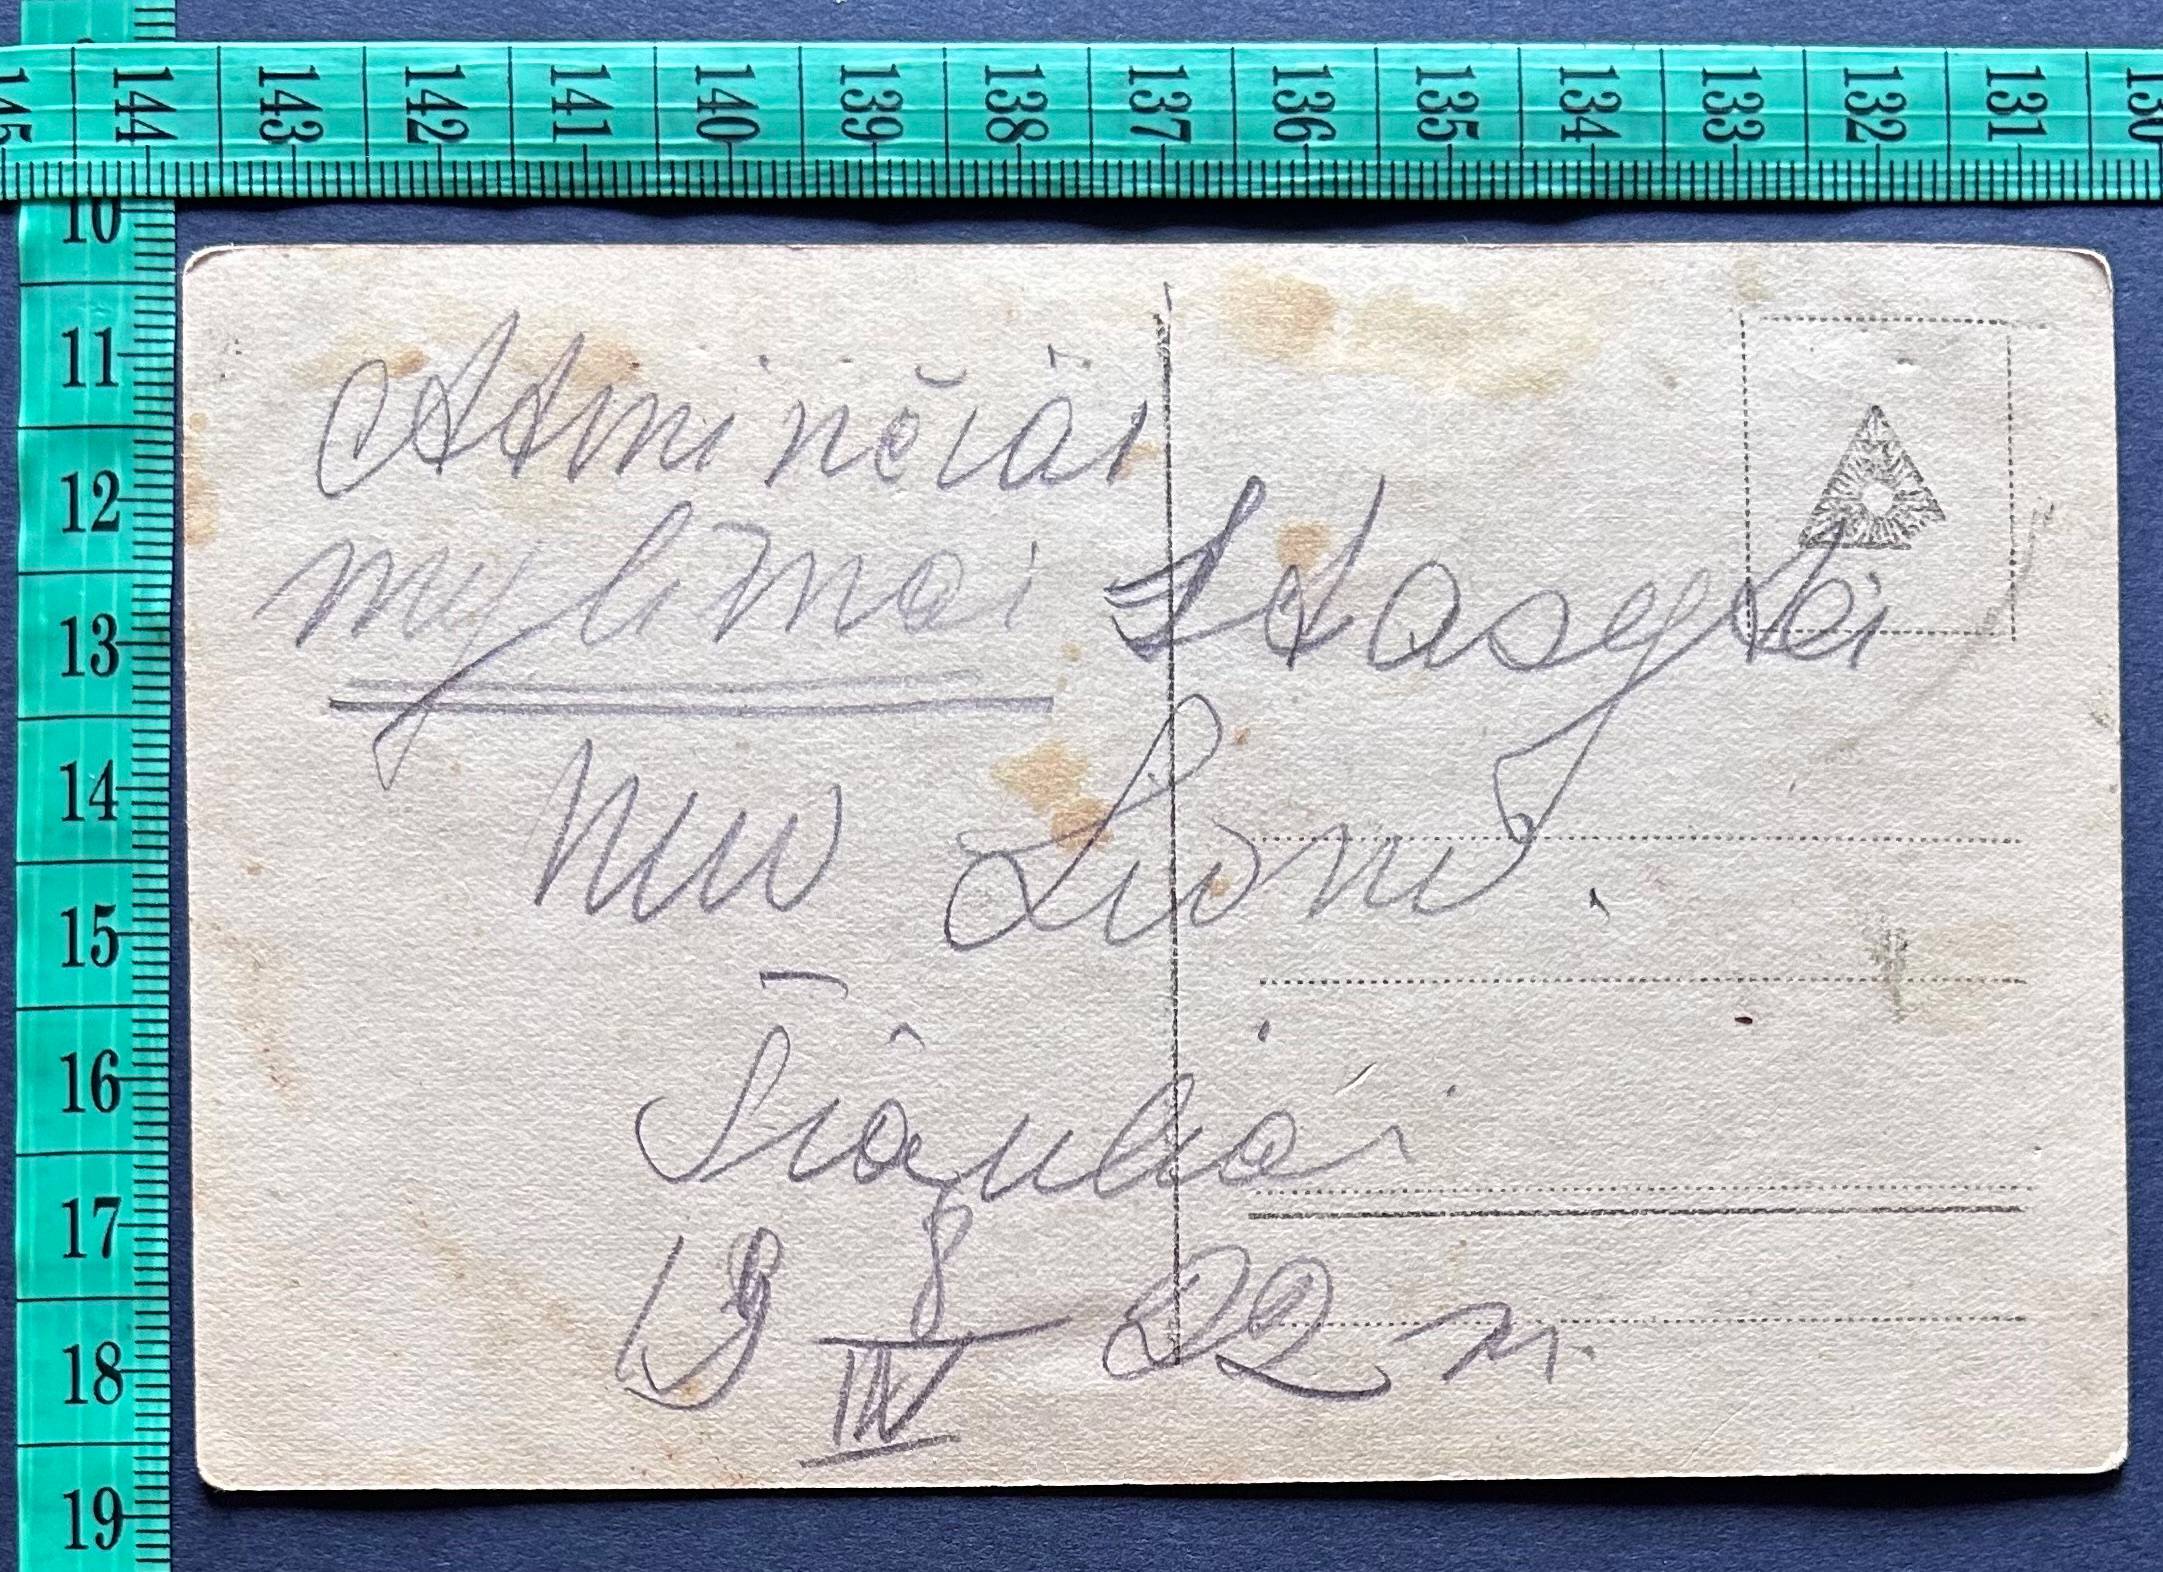 145 144 143 142 141 140 139 138 137 136 135 134 133 132 131 130
10
11
12
13
14
15
16
17
18
19
Atminčiai
mylimai Stasytei
nuo Lionė.
Šiauliai
19 8/IV 22 m.